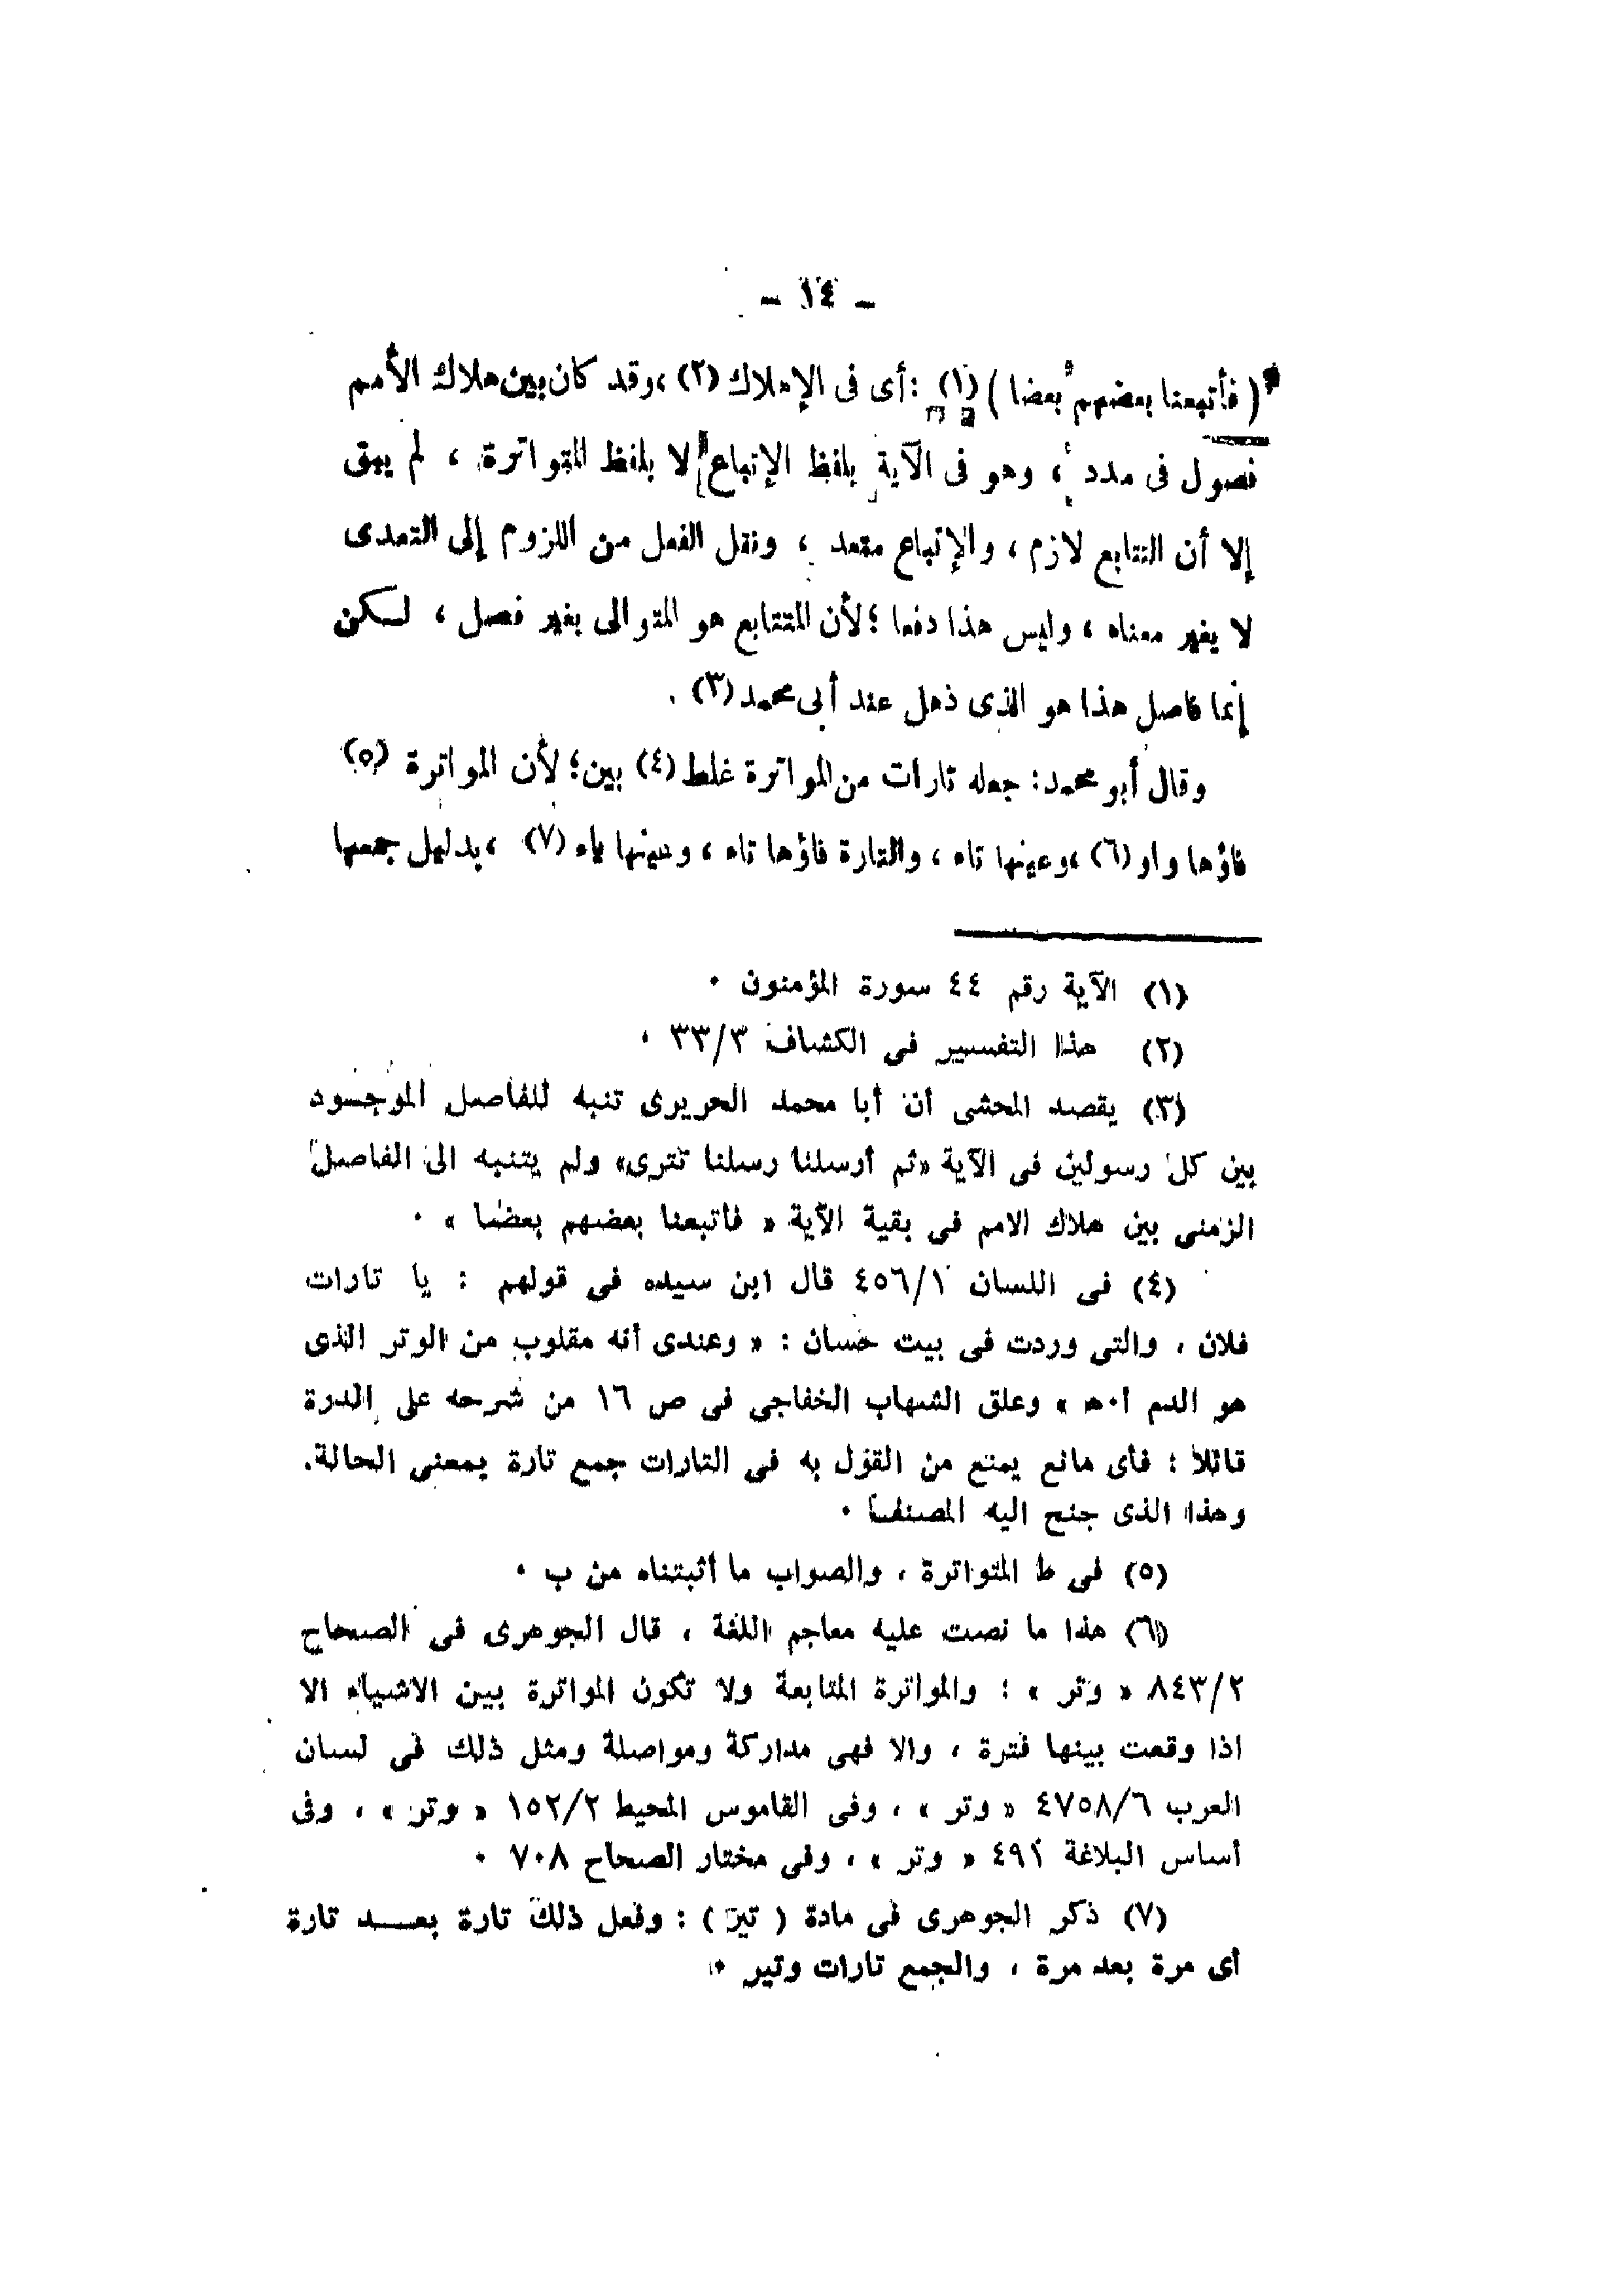 - ١٤ -
( فأتبعنا بعضهم بعضا ) (١) : أى فى الإهلاك (٢) ، وقد كان بين هلاك الأمم
فصول فى مدد ، وهو فى الآية بلفظ الإتباع لا بلفظ المتواترة ، لم يبق
إلا أن التتابع لازم ، والإتباع متعد ، ونقل الفعل من اللزوم إلى التعدى
لا يغير معناه ، وليس هذا دفعا ؛ لأن المتتابع هو المتوالى بغير فصل ، لكن
إنما فاصل هذا هو الذى ذهل عند أبى محمد (٣) .
وقال أبو محمد : جعله تارات من المواترة غلط (٤) بين ؛ لأن المواترة (٥)
فاؤها واو (٦) ، وعينها تاء ، والتارة فاؤها تاء ، وعينها ياء (٧) ، بدليل جمعها
(١) الآية رقم ٤٤ سورة المؤمنون .
(٢) هذا التفسير فى الكشاف ٣٣/٣ .
(٣) يقصد المحشى أن أبا محمد الحريرى تنبه للفاصل الموجود
بين كل رسولين فى الآية «ثم أرسلنا رسلنا تترى» ولم يتنبه الى الفاصل
الزمنى بين هلاك الامم فى بقية الآية « فأتبعنا بعضهم بعضا » .
(٤) فى اللسان ٤٥٦/١ قال ابن سيده فى قولهم : يا تارات
فلان ، والتى وردت فى بيت حسان : « وعندى أنه مقلوب من الوتر الذى
هو الدم ا٠هـ » وعلق الشهاب الخفاجى فى ص ١٦ من شرحه على الدرة
قائلا : فأى مانع يمنع من القول به فى التارات جمع تارة بمعنى الحالة.
وهذا الذى جنح اليه المصنف .
(٥) فى ط المتواترة ، والصواب ما أثبتناه من ب .
(٦) هذا ما نصت عليه معاجم اللغة ، قال الجوهرى فى الصحاح
٨٤٣/٢ « وتر » : والمواترة المتابعة ولا تكون المواترة بين الاشياء الا
اذا وقعت بينها فترة ، والا فهى مداركة ومواصلة ومثل ذلك فى لسان
العرب ٤٧٥٨/٦ « وتر » ، وفى القاموس المحيط ١٥٢/٢ « وتر » ، وفى
أساس البلاغة ٤٩١ « وتر » ، وفى مختار الصحاح ٧٠٨ .
(٧) ذكر الجوهرى فى مادة ( تير ) : وفعل ذلك تارة بعـــد تارة
أى مرة بعد مرة ، والجمع تارات وتير .